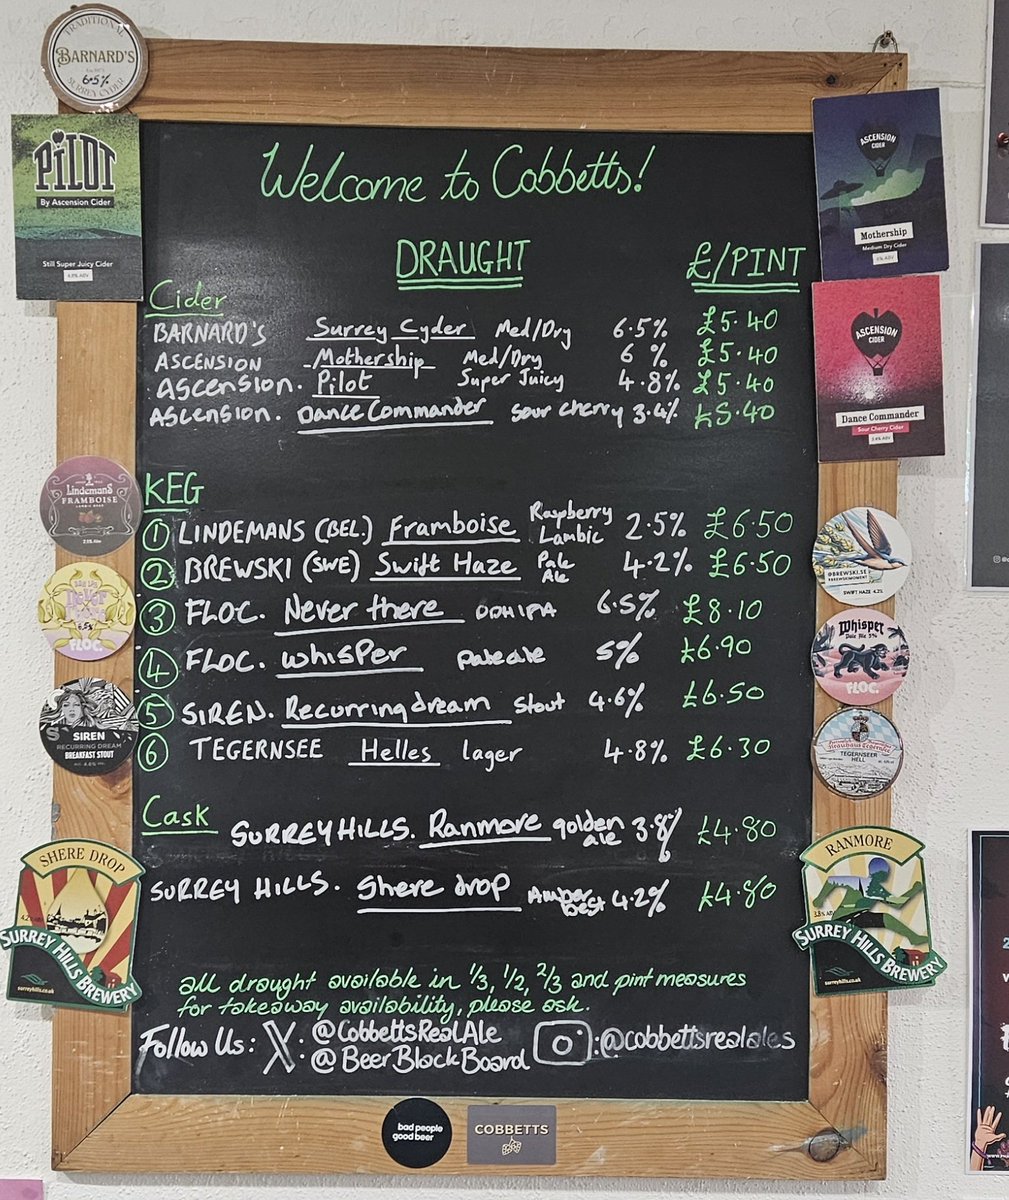 TRADITIONAL
BARNARD'S
6.5%
SURREY CYDER
PILOT
By Ascension Cider
Still Super Juicy Cider
4.8% ABV
ASCENSION
CIDER
Mothership
Medium Dry Cider
6% ABV
ASCENSION
CIDER
Dance Commander
Sour Cherry Cider
3.4% ABV
Welcome to Cobbetts!
DRAUGHT £/PINT
Cider
BARNARD'S Surrey Cyder Med/Dry 6.5% £5.40
ASCENSION Mothership Med/Dry 6% £5.40
Ascension. Pilot Super Juicy 4.8% £5.40
Ascension. Dance Commander Sour Cherry 3.4% £5.40
KEG
1 LINDEMANS (BEL.) Framboise Raspberry Lambic 2.5% £6.50
2 BREWSKI (SWE) Swift Haze Pale Ale 4.2% £6.50
3 FLOC. Never there DDH IPA 6.5% £8.10
4 FLOC. Whisper pale ale 5% £6.90
5 SIREN. Recurring dream Stout 4.6% £6.50
6 TEGERNSEE Helles lager 4.8% £6.30
Cask
SURREY HILLS. Ranmore golden ale 3.8% £4.80
SURREY HILLS. Shere drop Amber best 4.2% £4.80
all draught available in 1/3, 1/2, 2/3 and pint measures
for takeaway availability, please ask.
Follow Us: X: @CobbettsRealAle
: @BeerBlackBoard
: @cobbettsrealales
Lindemans
FRAMBOISE
LAMBIC BEER
2.5% Alc
6.5%
FLOC.
SIREN
RECURRING DREAM
BREAKFAST STOUT
@BREWSKI.SE
@BREWSKIMOMENT
SWIFT HAZE 4.2%
Whisper
Pale Ale 5%
FLOC.
TEGERNSEER
HELL
SHERE DROP
4.2% ABV
SURREY HILLS BREWERY
surreyhills.co.uk
RANMORE
3.8% ABV
SURREY HILLS BREWERY
surreyhills.co.uk
bad people
good beer
COBBETTS